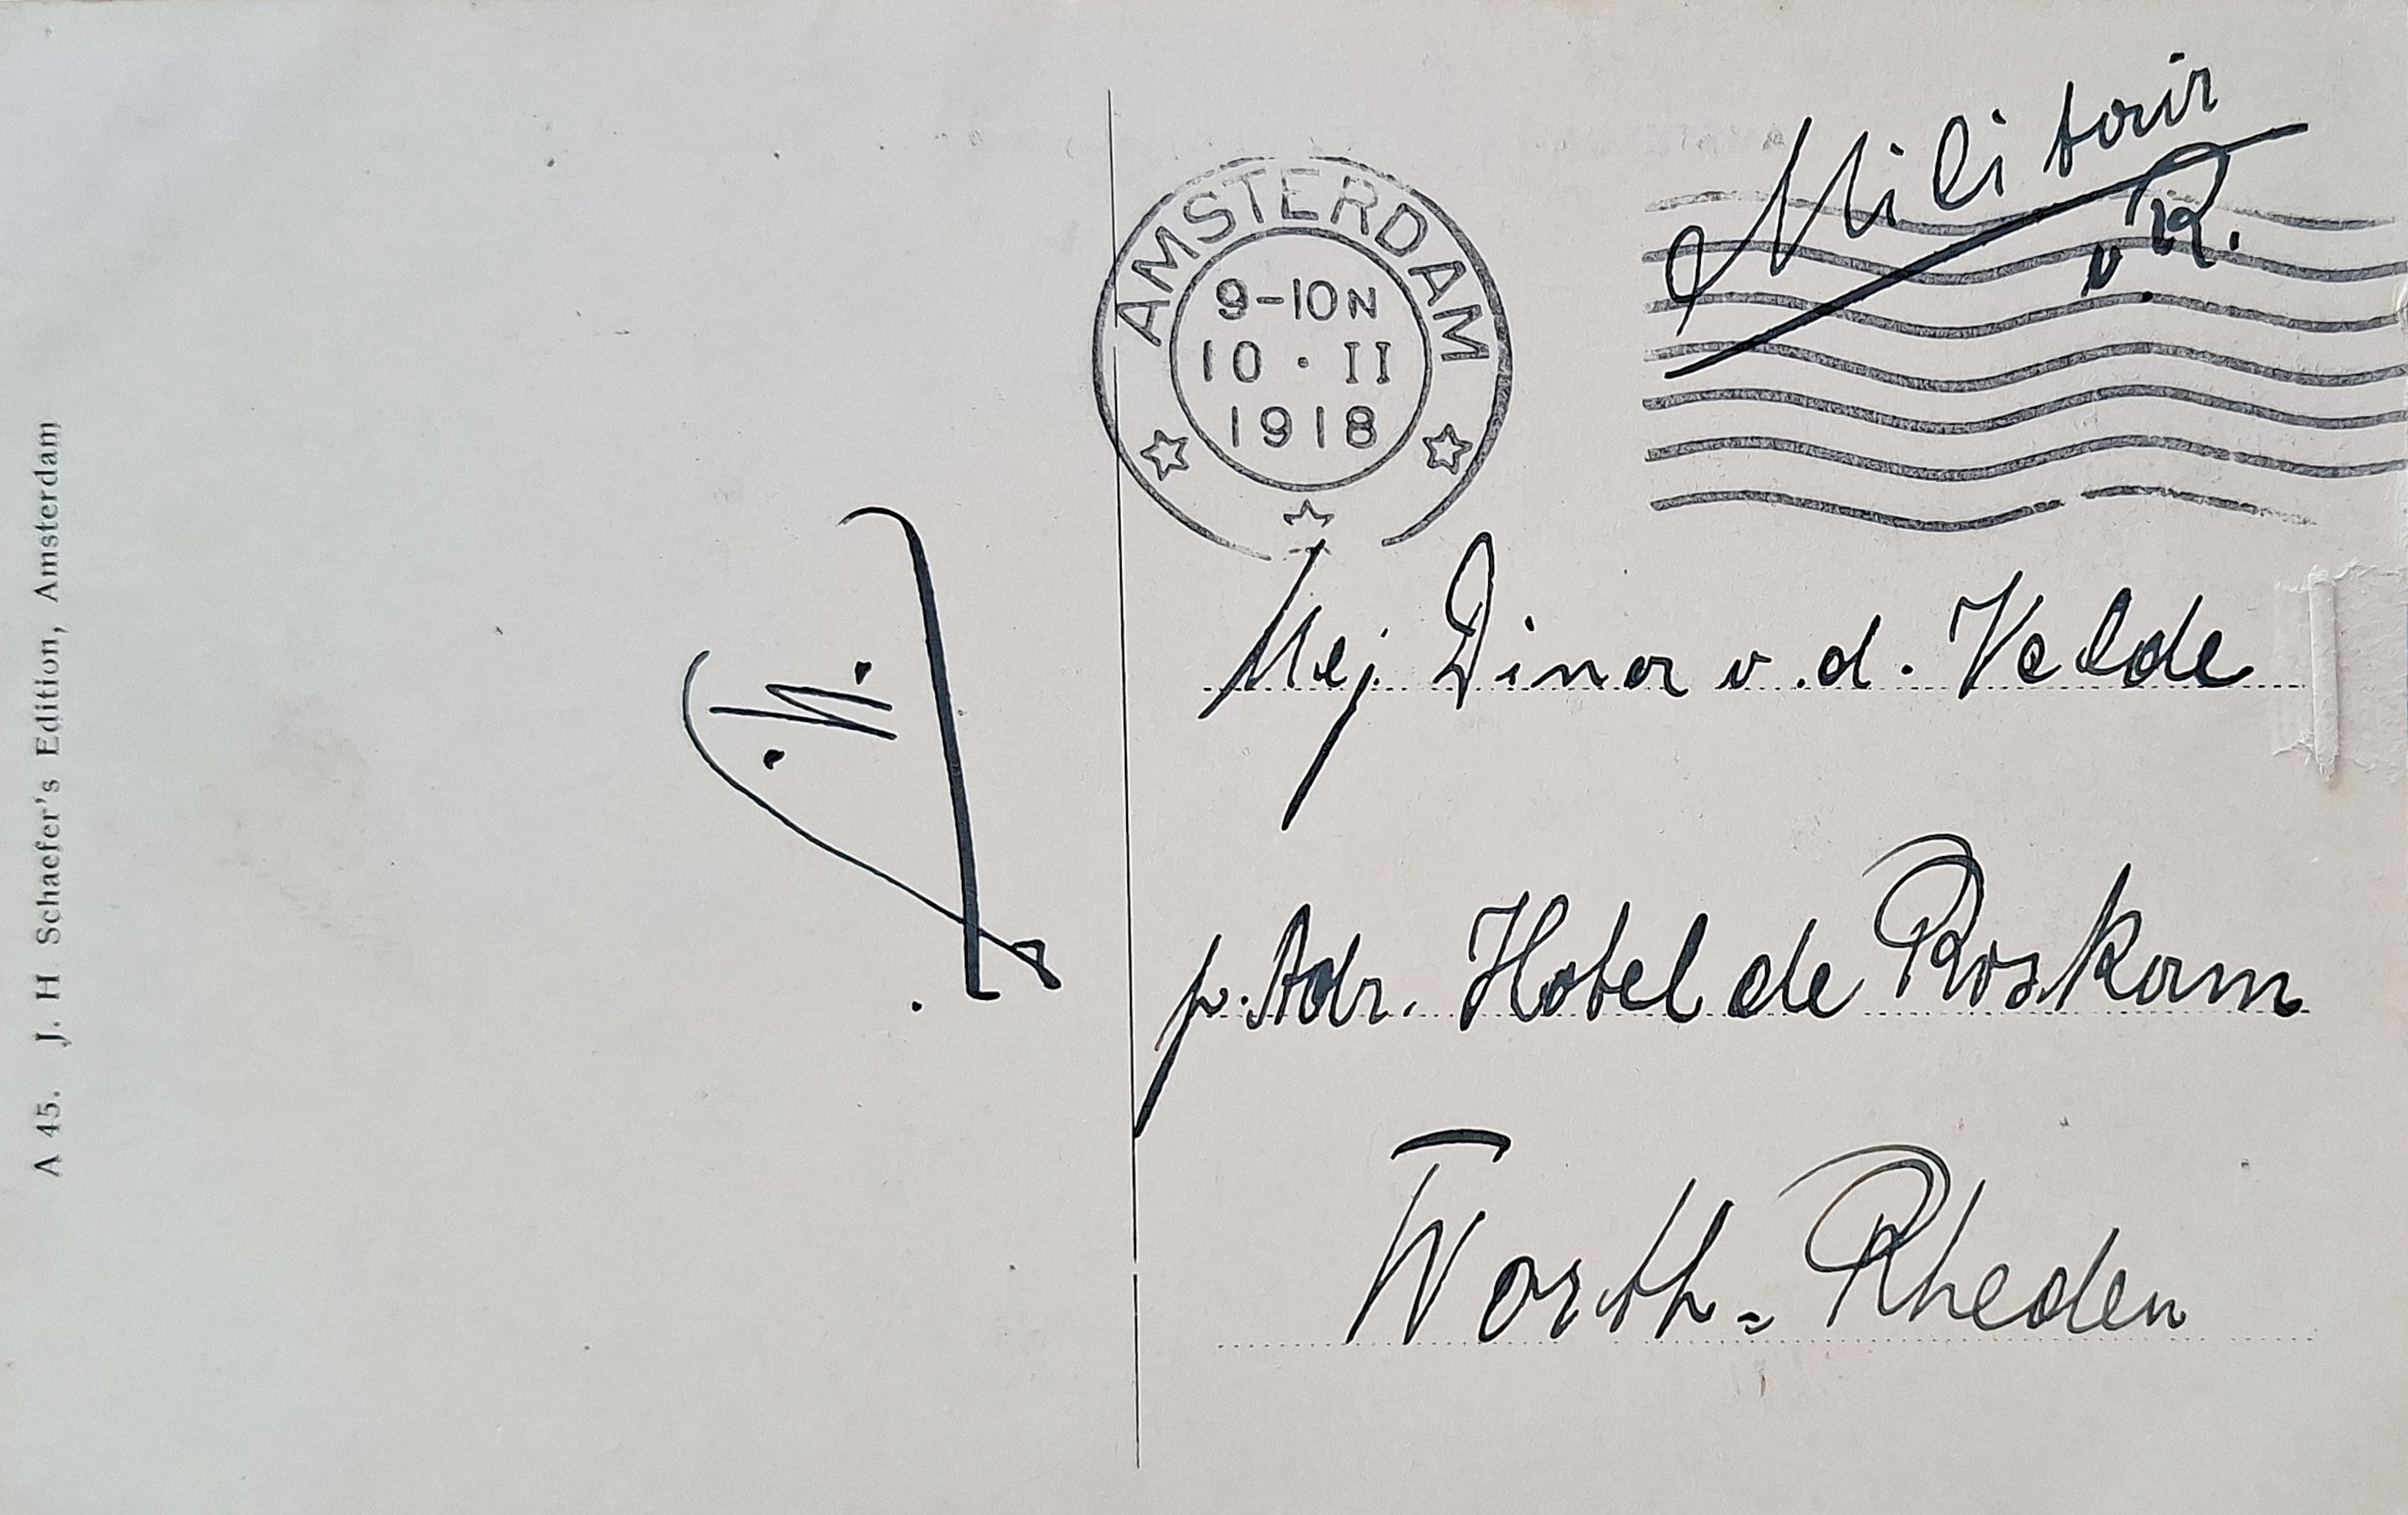 A 45. J. H Schaefer's Edition, Amsterdam
AMSTERDAM
9-10N
10 · II
1918
Militair
v. R.
Mej. Dina v.d. Velde
p. Adr. Hotel de Roskam
Worth=Rheden